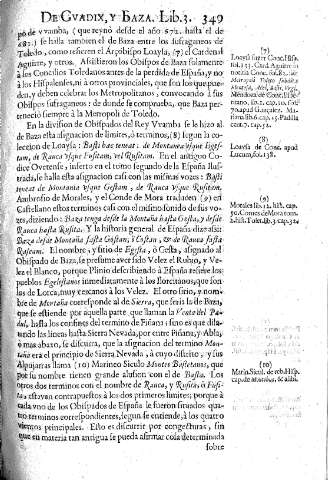 DE GVADIX, Y BAZA. Lib.3. 349
po de vvamba, (que reynò desde el año 572. hasta el de
se halla tambien el de Baza entre los sufraganeos de
Toledo, como refieren el Arçobispo Loaysa, (7) y el Cardenal
Aguirre, y otros. Assistieron los Obispos de Baza solamente
à los Concilios Toledanos antes de la perdida de España, y no
à los Hispalenses, ni à otros provinciales, que son los que pueden,
y deben celebrar los Metropolitanos convocando à sus
Obispos sufraganeos: de donde se comprueba, que Baza perteneciò
siempre à la Metropoli de Toledo.
En la division de Obispados del Rey Vvamba se le hizo al
de Baza esta asignacion de limites, ò terminos, (8) segun la coleccion
de Loaysa: Basti hæc teneat: de Montanea Vsque Egestam,
de Rauca Vsque Fusitam, vel Rusitam. En el antiguo Codice
Ovetense, inserto en el tomo segundo de la España Ilustrada,
se halla esta asignacion casi con las mismas vozes: Basti
teneat de Montania Vsque Gestam, de Ranca Vsque Rusitam.
Ambrosio de Morales, y el Conde de Mora traducen (9) en
Castellano estos terminos casi con el mismo sonido de sus vozes,
diziendo: Baza tenga desde la Montaña hasta Gesta, y desde
Rauca hasta Rusita. Y la historia general de España dize assi:
Baza desde Montaña fasta Gestam, &c.
Rusitam. El nombre, y sitio de Egesta, ò Gesta, asignado al
Obispado de Baza, se presume aver sido Velez el Rubio, y Velez
el Blanco, porque Plinio describiendo à España refiere los
pueblos Egelestanos inmediatamente à los Ilorcitanos, que son
los de Lorca, muy cercanos à los Velez. El otro sitio, y nombre
de Montaña corresponde al de Sierra, que seria la de Baza,
que se estiende por aquella parte, que llaman la Venta del Padul,
hasta los confines del termino de Fiñana; sino es que dilatando
las lineas hasta Sierra Nevada, por entre Fiñana, y Abla,
ò mas abaxo, se discurra, que la asignacion del termino Montaña
era el principio de Sierra Nevada, à cuyo distrito, y sus
Alpujarras llama (10) Marineo Siculo Montes Bastetanos, que
por su nombre tienen grande alusion con el de Basta. Los
otros dos terminos con el nombre de Rauca, y Rusita, ò Fusita
estavan contrapuestos à los dos primeros limites; porque à
cada vno de los Obispados de España le fueron situados quatro
terminos correspondientes, segun se entiende, à los quatro
vientos principales. Esto es discurrir por congeturas, sin
que en materia tan antigua se pueda afirmar cosa determinada
sobre
(7)
Loaysa super Conc. Hisp.
(8)
Loaysa de Conc. apud
Lucum, fol. 138.
(9)
Morales lib. 12. hist. cap.
(10)
Marin. Sicul. de reb. Hisp.